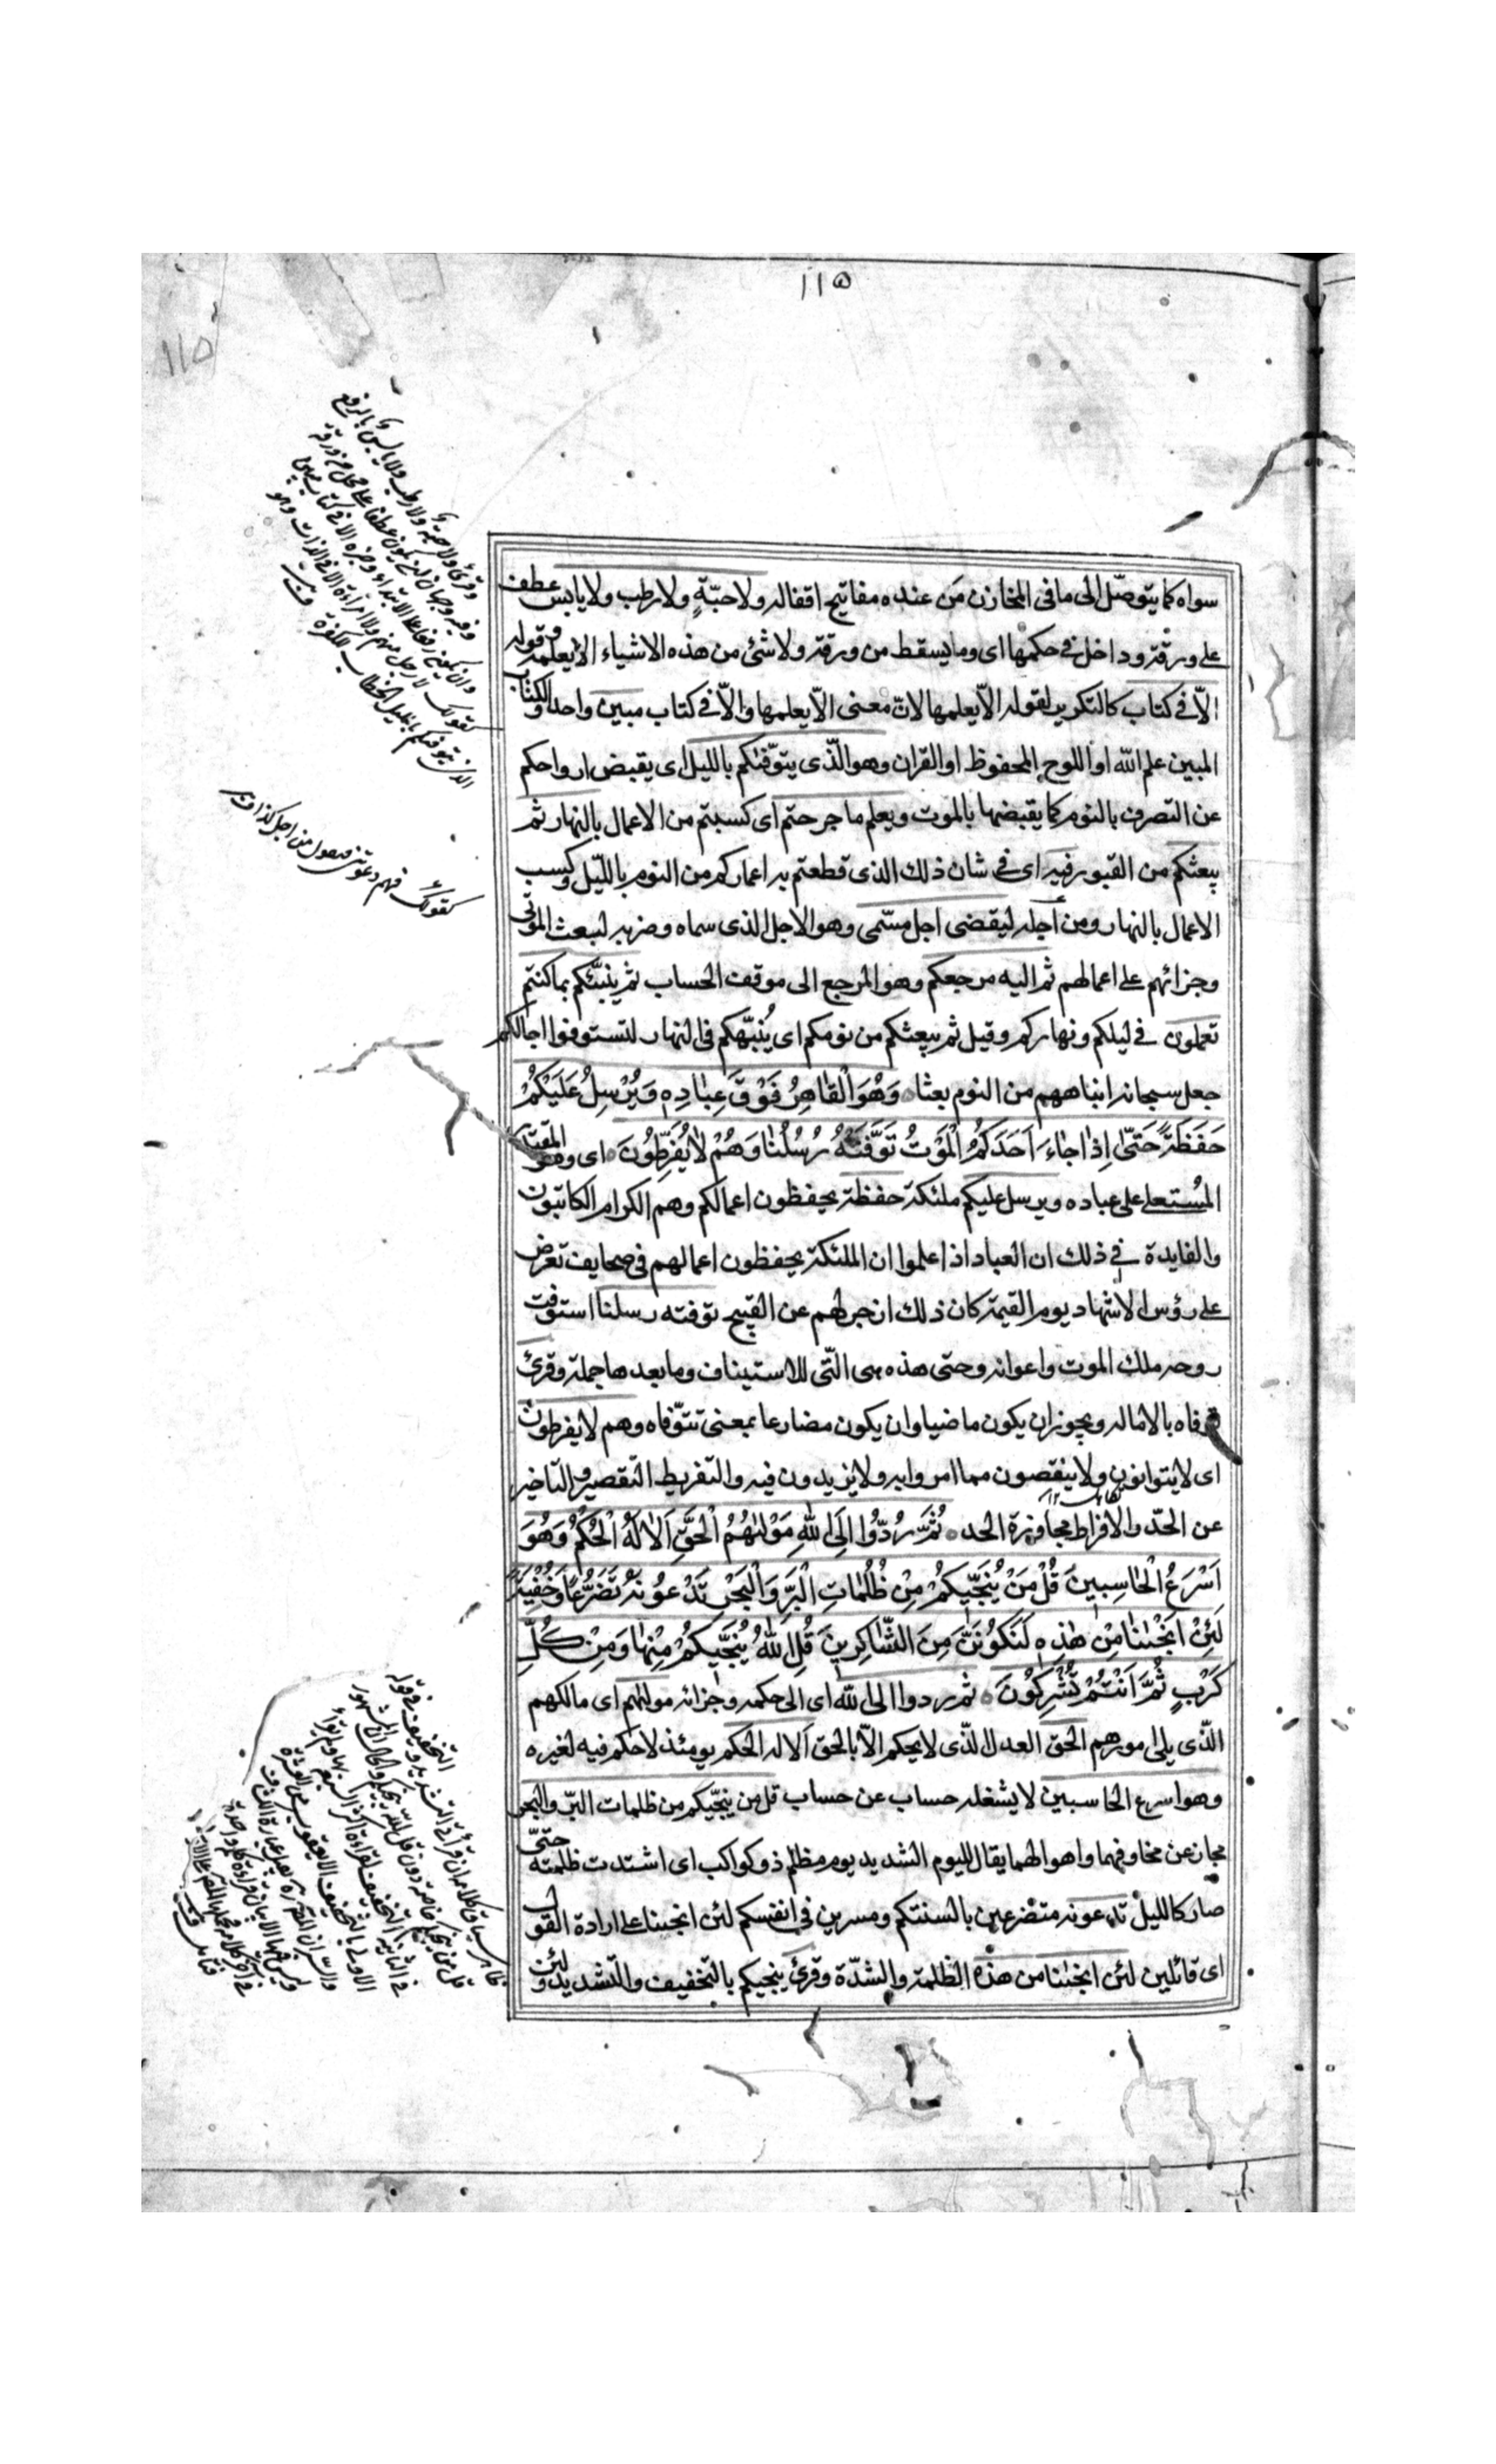 ١١٥
١١٥
سواه كما يتوصّل الى ما فى المخازن مَن عنده مفاتيح اقفاله ولا حبّةٍ ولا رطب ولا يابس عطف
على ورقة وداخل فى حكمها اى وما يسقط من ورقة ولا شئ من هذه الاشياء الا يعلمه وقوله
الّا فى كتاب كالتكرير لقوله الّا يعلمها لانّ معنى الّا يعلمها والّا فى كتاب مبين واحد والكتاب
المبين علم الله او اللوح المحفوظ او القران وهو الّذى يتوّفٰكم بالليل اى يقبض ارواحكم
عن التصرف بالنوم كما يقبضها بالموت ويعلم ما جرحتم اى كسبتم من الاعمال بالنهار ثم
يبعثكم من القبور فيه اى فى شان ذلك الذى قطعتم به اعماركم من النوم بالليل وكسب
الاعمال بالنهار ومن اجله ليقضى اجل مسّمى وهو الاجل الذى سماه وضربه لبعث الموتى
وجزائهم على اعمالهم ثم اليه مرجعكم وهو المرجع الى موقف الحساب ثم ينبّئكم بما كنتم
تعملون فى ليلكم ونهاركم وقيل ثم يبعثكم من نومكم اى يُنبّهكم فى النهار لتستوفوا اجالكم
جعل سبحانه انباههم من النوم بعثا ه وَهُوَ الْقٰاهِرُ فَوْقَ عِبٰادِهِ وَيُرْسِلُ عَلَيْكُمْ
حَفَظَةً حَتّىٰ اِذٰا جٰاءَ اَحَدَكُمُ الْمَوْتُ تَوَفَّتْهُ رُسُلُنٰا وَهُمْ لٰا يُفَرِّطُونَ ه اى وهو المقتدر
المُستعلى على عباده ويرسل عليكم ملئكة حفظة يحفظون اعمالكم وهم الكرام الكاتبون
والفايدة فى ذلك ان العباد اذا علموا ان الملئكة يحفظون اعمالهم فى صحايف تعرض
على رؤس الاشهاد يوم القيمة كان ذلك ازجر لهم عن القبيح توفته رسلنا استوفت
روحه ملك الموت واعوانه وحتى هذه هى الّتى للاستيناف وما بعدها جملة وقرئ
توفاه بالاماله ويجوز ان يكون ماضيا وان يكون مضارعا بمعنى تتوّفاه وهم لا يفرطون
اى لا يتوانون ولا ينقصون مما امروا به ولا يزيدون فيه والتفريط التقصير والتاخير
عن الحدّ والافراط مجاوزة الحد ه ثُمَّ رُدُّوا اِلَى اللّٰهِ مَوْلٰيهُمُ الْحَقِّ اَلٰا لَهُ الْحُكْمُ وَهُوَ
اَسْرَعُ الْحٰاسِبِينَ قُلْ مَنْ يُنَجِّيكُمْ مِنْ ظُلُمٰاتِ الْبَرِّ وَالْبَحْرِ تَدْعُونَهُ تَضَرُّعًا وَخُفْيَةً
لَئِنْ اَنْجٰينٰا مِنْ هٰذِهِ لَنَكُونَنَّ مِنَ الشّٰاكِرِينَ قُلِ اللّٰهُ يُنَجِّيكُمْ مِنْهٰا وَمِنْ كُلِّ
كَرْبٍ ثُمَّ اَنْتُمْ تُشْرِكُونَ ه ثم ردوا الى الله اى الى حكمه وجزائه مولٰهم اى مالكهم
الّذى يلى امورهم الحق العدل الّذى لا يحكم الّا بالحق اَلا له الحكم يومئذ لا حكم فيه لغيره
وهو اسرع الحاسبين لا يشغله حساب عن حساب قل من ينجّيكم من ظلمات البرّ والبحر
مجاز عن مخاوفهما واهوالهما يقال لليوم الشديد يوم مظلم ذو كواكب اى اشتدت ظلمته حتىّ
صار كالليل تدعونه متضرعين بالسنتكم ومسرين فى انفسكم لئن انجيتنا على ارادة القول
اى قائلين لئن انجيتنا من هذه الظلمة والشدّة وقرئ ينجيكم بالتخفيف والتشديد ولئن
وقرئ ولا حبة ولا رطب ولا يابس بالرفع
وفيه وجهان ان يكون عطفا على محل من ورقة
وان يكون رفعا على الابتداء وخبره الا فى كتاب مبين
كقولك لا رجل منهم ولا امراة الا فى الدار
كقولك فيم دعوتنى فيقول من اجل كذا